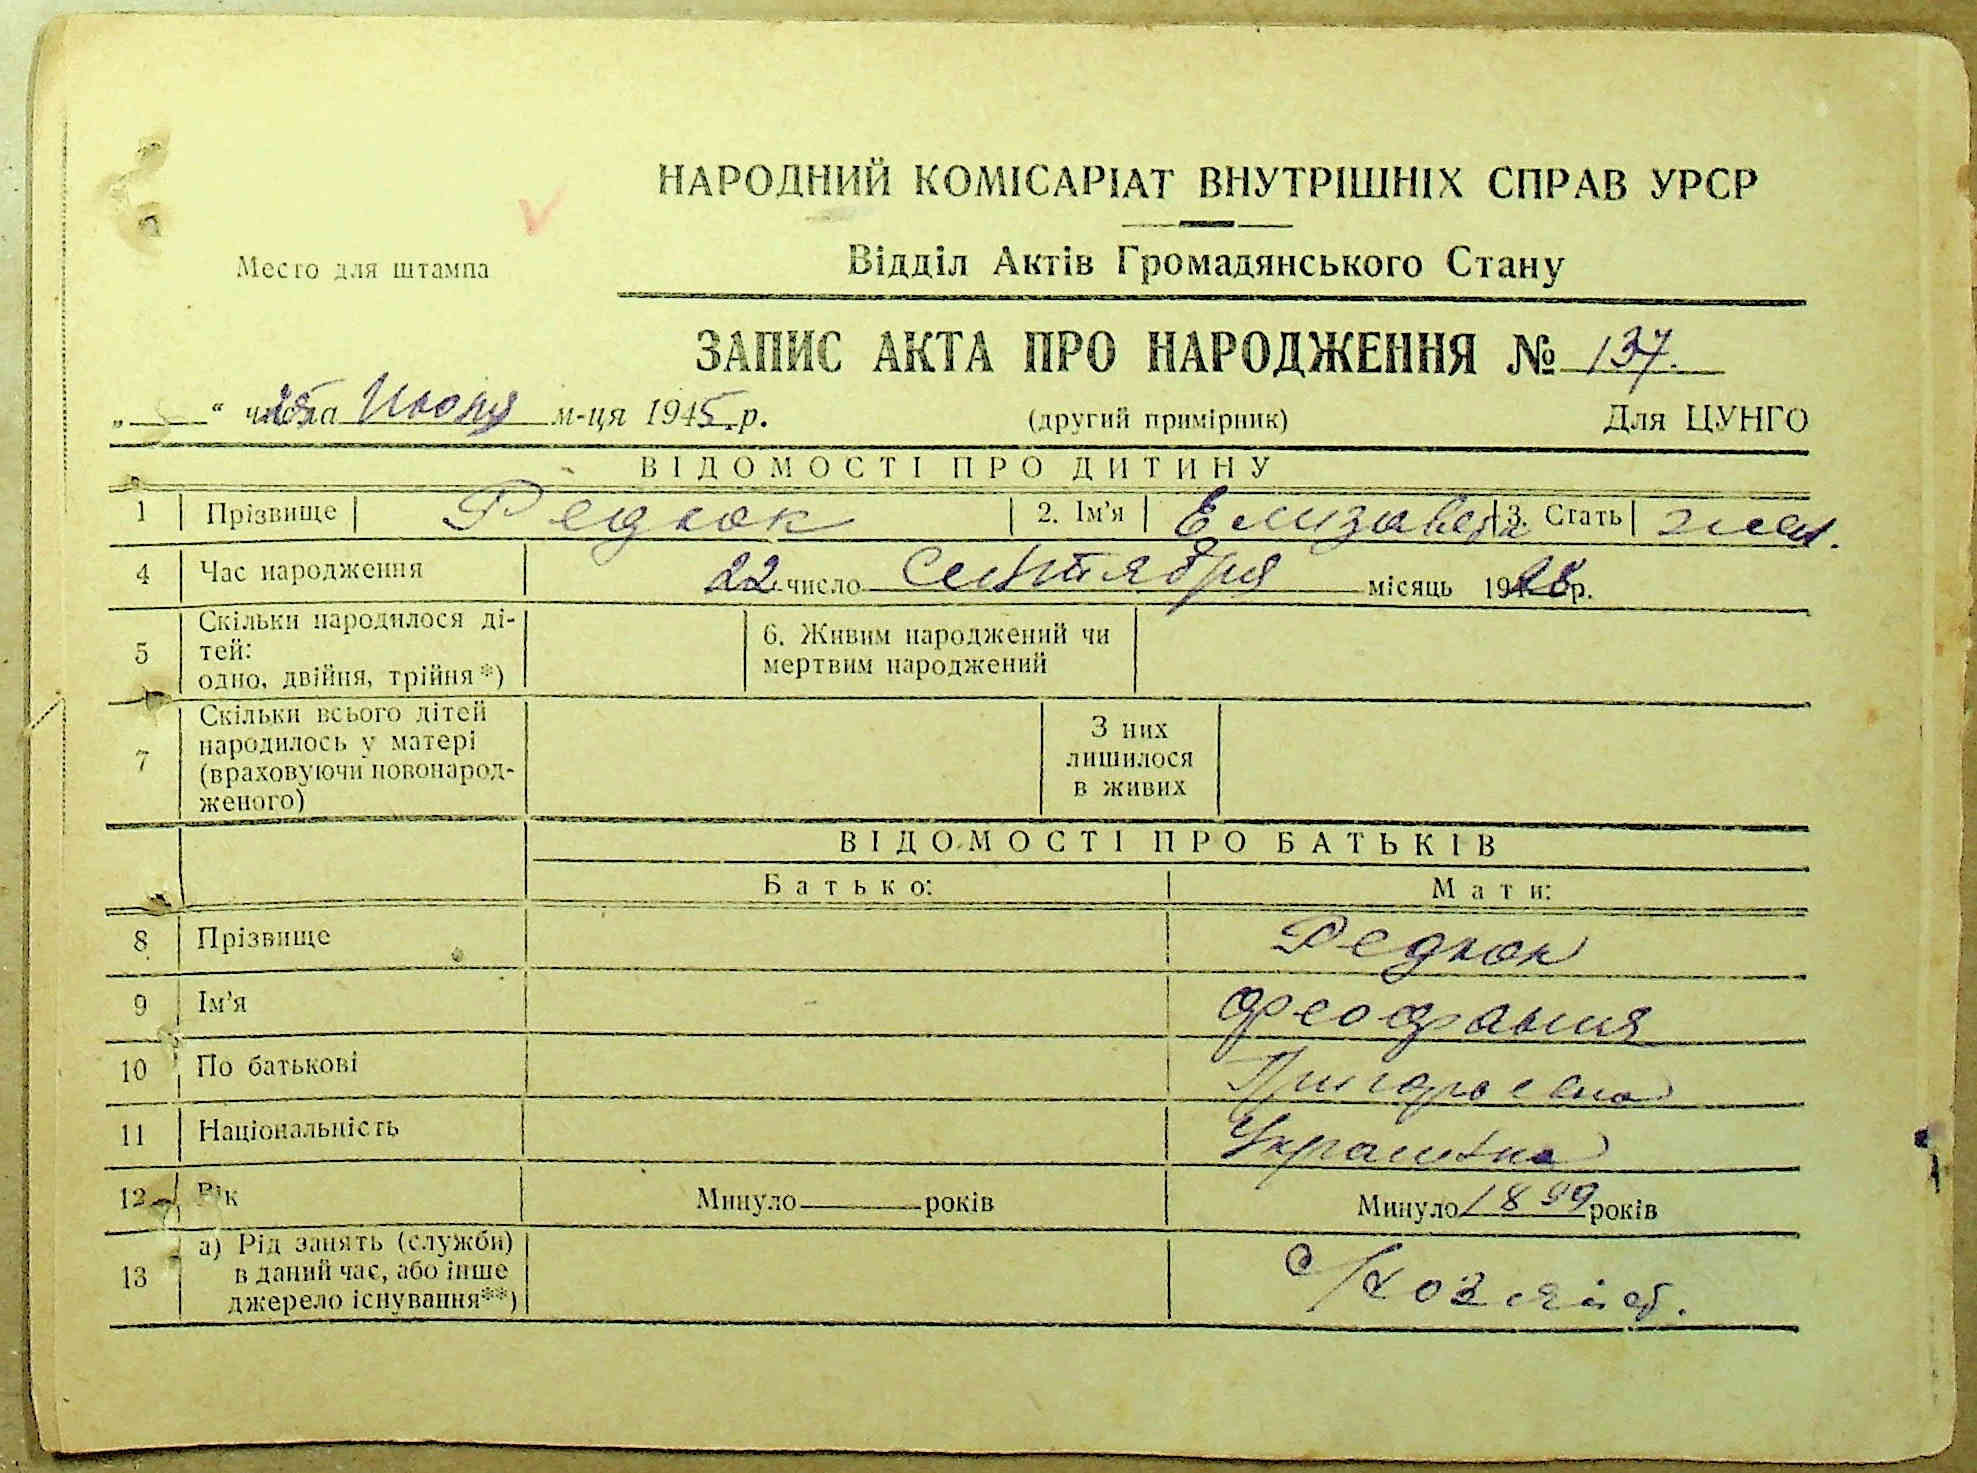 НАРОДНИЙ КОМІСАРІАТ ВНУТРІШНІХ СПРАВ УРСР
Место для штампа
Відділ Актів Громадянського Стану
ЗАПИС АКТА ПРО НАРОДЖЕННЯ № 137.
„ “ числа м-ця 1945 р. (другий примірник) Для ЦУНГО
ВІДОМОСТІ ПРО ДИТИНУ
1 Прізвище Редкок 2. Ім’я Елизавета 3. Стать жен.
4 Час народження 22 число Сентября місяць 1928 р.
5 Скільки народилося ді-
тей:
одно, двійня, трійня*)
6. Живим народжений чи
мертвим народжений
7 Скільки всього дітей
народилось у матері
(враховуючи новонарод-
женого)
З них
лишилося
в живих
ВІДОМОСТІ ПРО БАТЬКІВ
Батько: Мати:
8 Прізвище Редкок
9 Ім’я Феофания
10 По батькові
11 Національність Украинка
12 Вік Минуло років Минуло 1899 років
13 а) Рід занять (служби)
в даний час, або інше
джерело існування**)